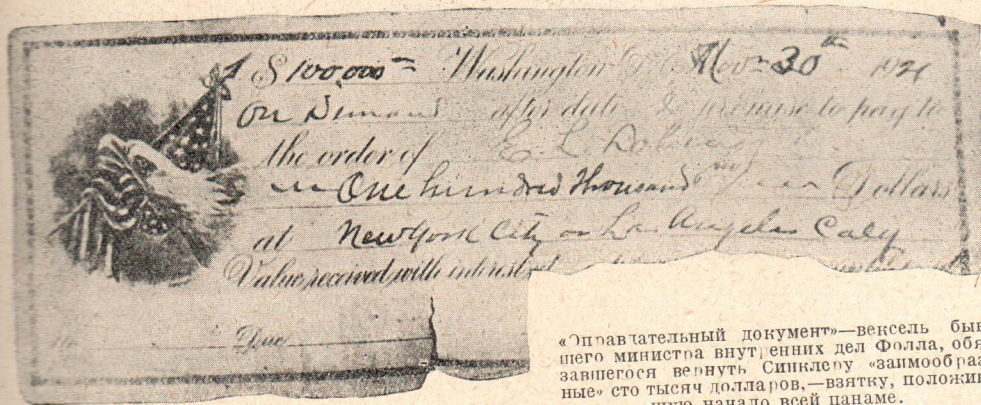 $ 100,000 = Washington D C Nov 30th 1921
On Demand after date I promise to pay to
the order of E. L. Doheny
One hundred thousand Dollars
at New York City or Los Angeles Calif
Value received with interest at
No. Due
«Оправдательный документ»—вексель быв
шего министра внутренних дел Фолла, обя
завшегося вернуть Синклеру «заимообраз
ные» сто тысяч долларов,—взятку, положив
шую начало всей панаме.